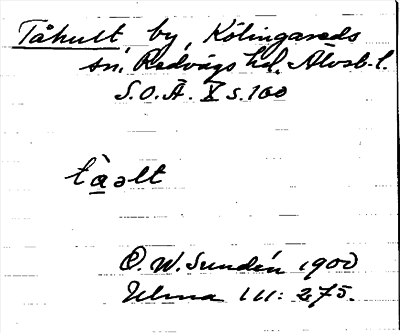 Tåhult, by, Kölingareds
sn. Redvägs hd. Älvsb. l.
S.O.Ä. X s. 100
tàəlt
O. W. Sundén 1900
Ulma 111: 275.